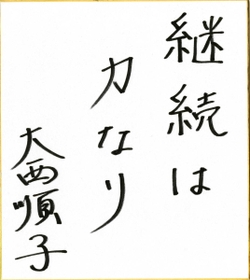 継続は
力なり
大西順子